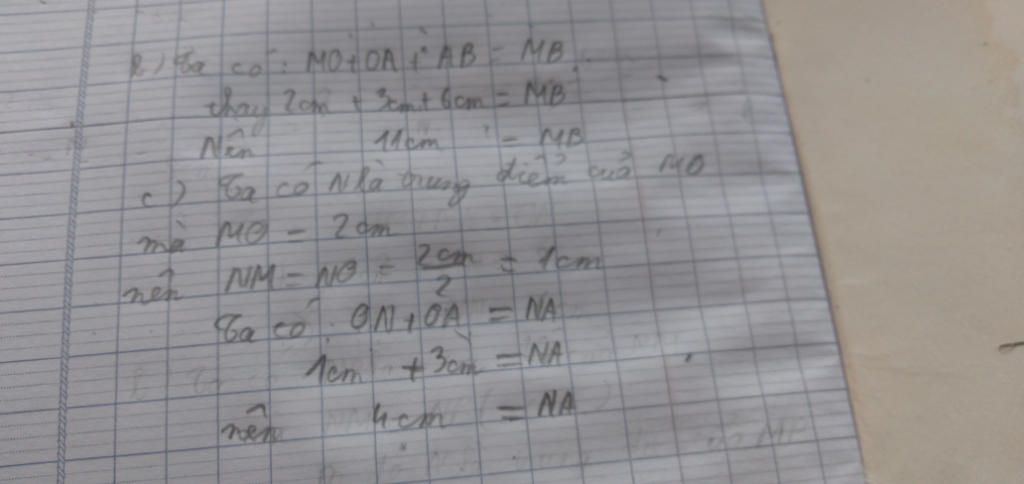 b) Ta có: MO + OA + AB = MB
thay 2cm + 3cm + 6cm = MB
Nên 11cm = MB
c) Ta có N là trung điểm của MO
mà MO = 2cm
nên NM = NO = 2cm/2 = 1cm
Ta có: ON + OA = NA
1cm + 3cm = NA
nên 4cm = NA